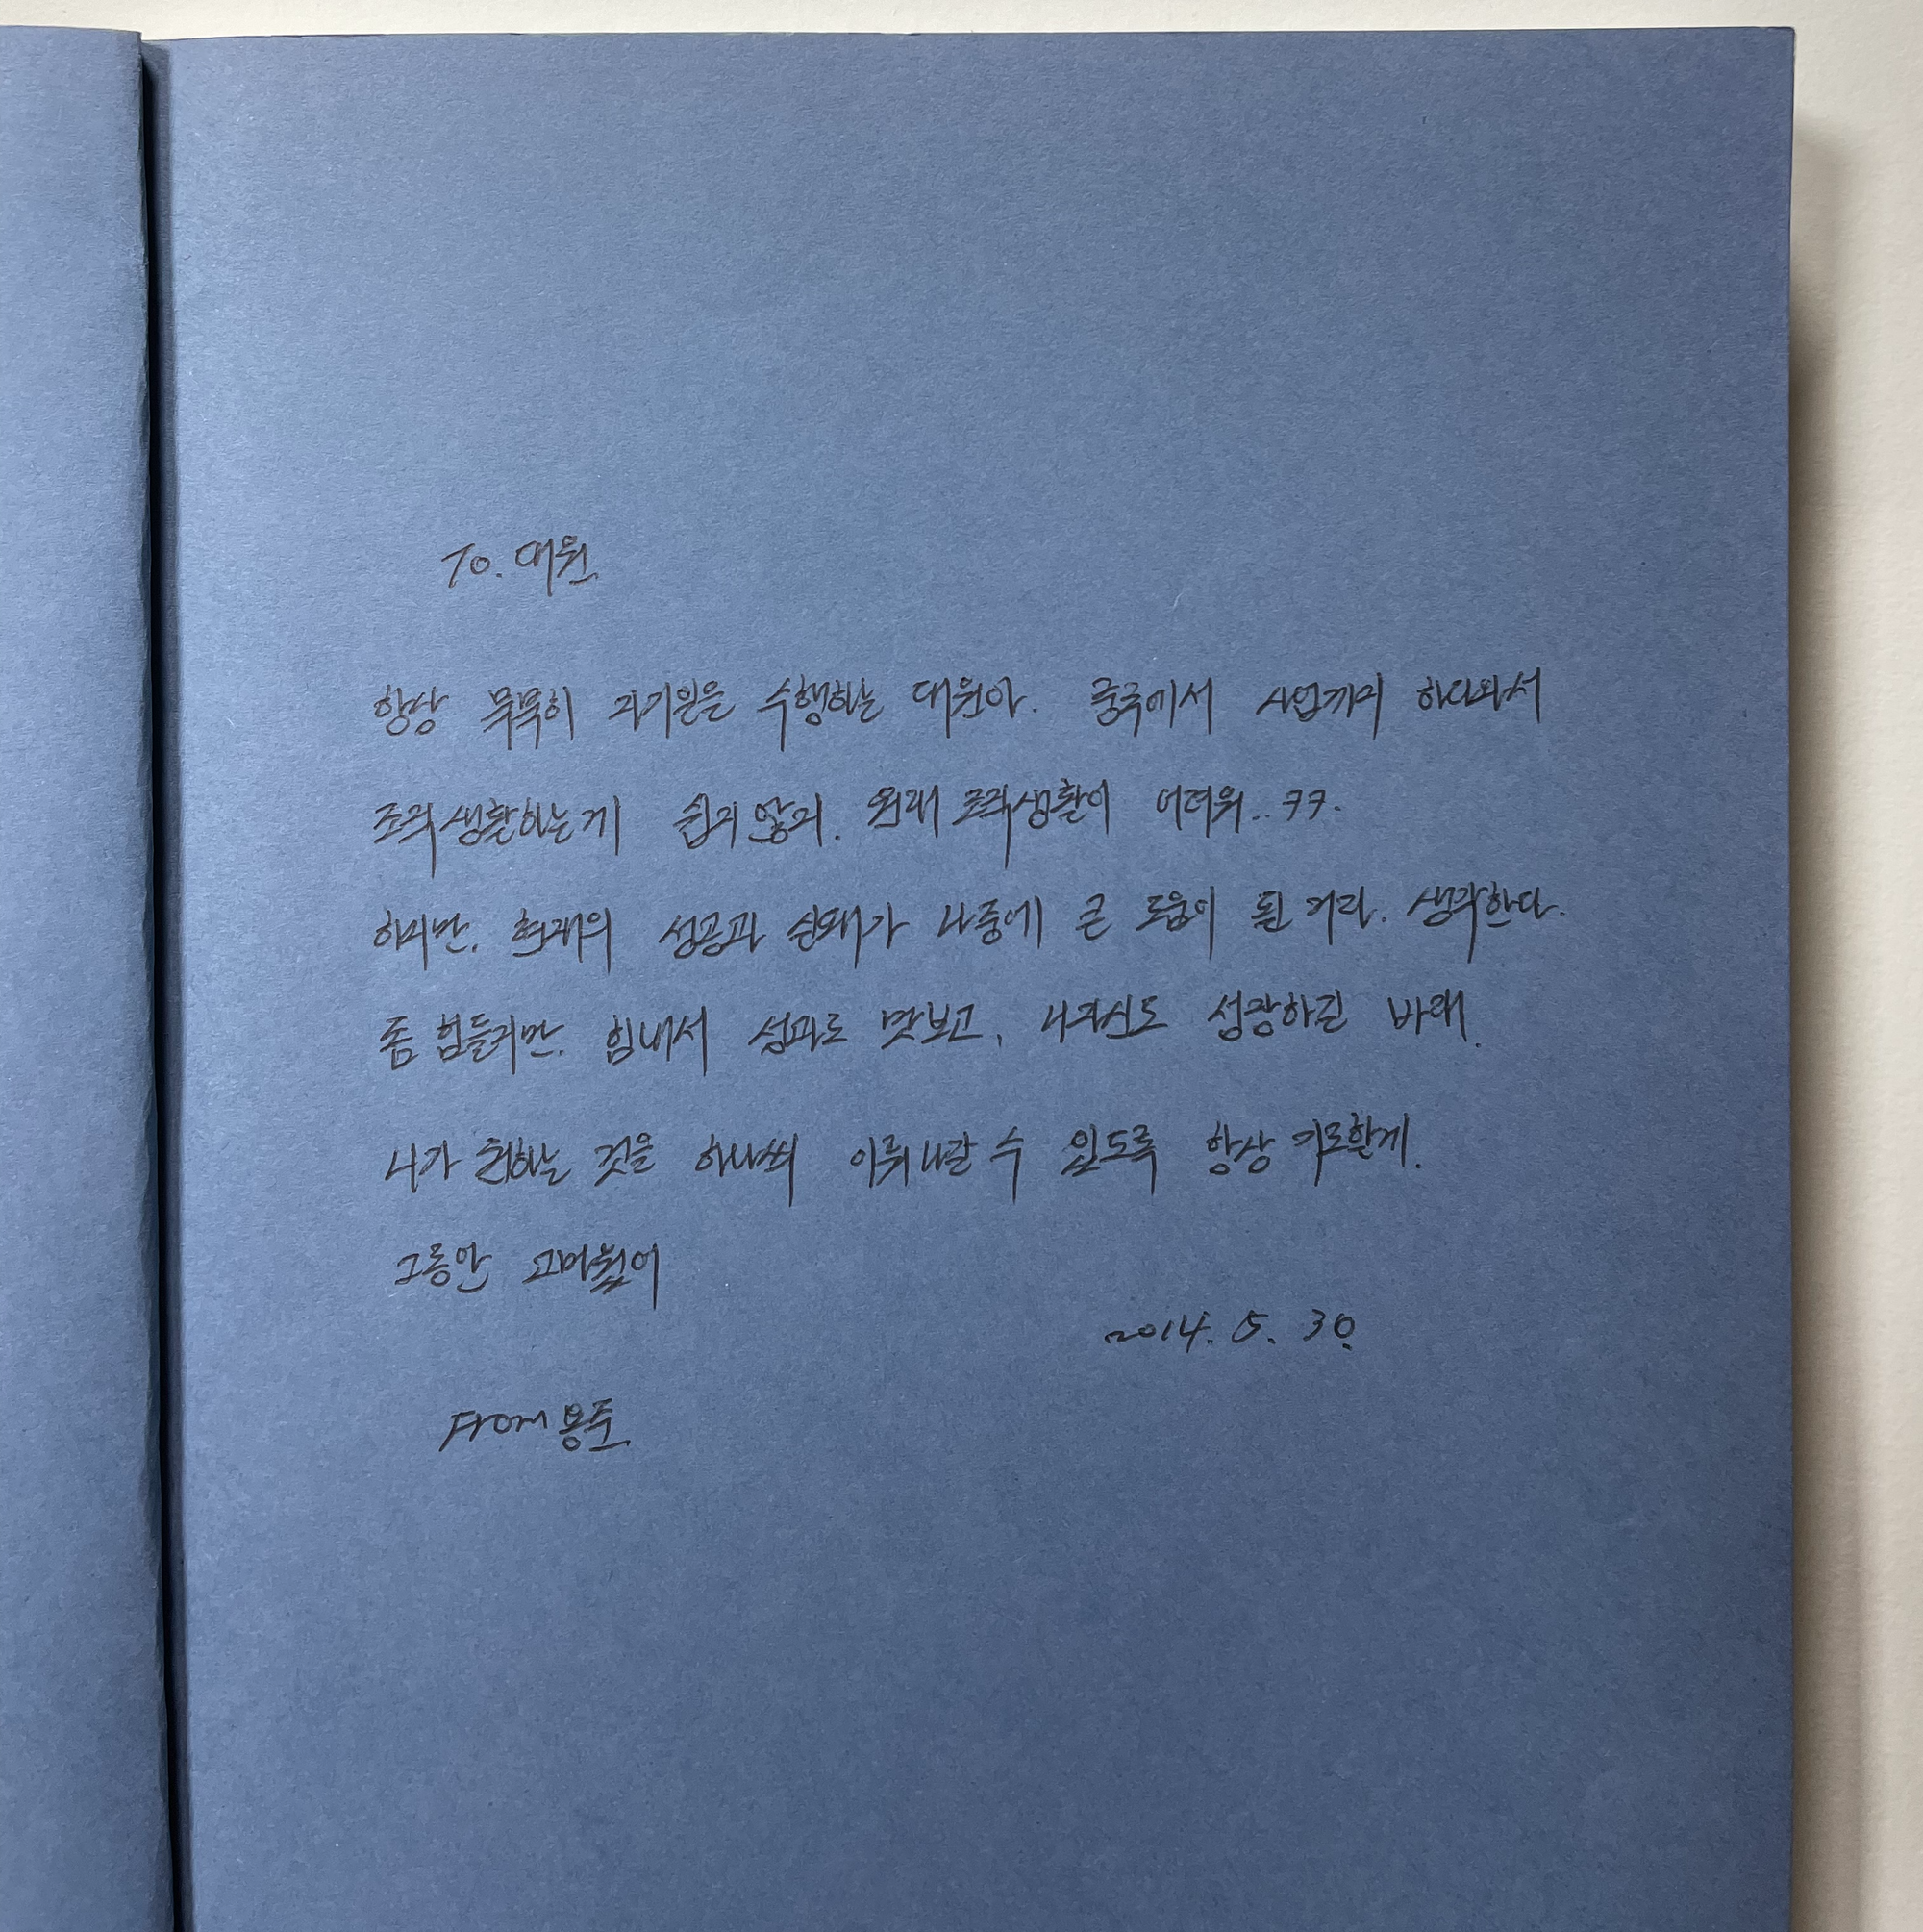 To. 대원
항상 묵묵히 자기일을 수행하는 대원아. 중국에서 사업까지 하다와서
조직생활하는게 쉽지않지. 원래 조직생활이 어려워.. ㅋㅋ.
하지만, 현재의 성공과 실패가 나중에 큰 도움이 될 거라. 생각한다.
좀 힘들지만, 힘내서 성과도 맛보고, 니자신도 성장하길 바래.
니가 원하는 것을 하나씩 이뤄나갈 수 있도록 항상 기도할게.
그동안 고마웠어
2014. 5. 30.
From 용주